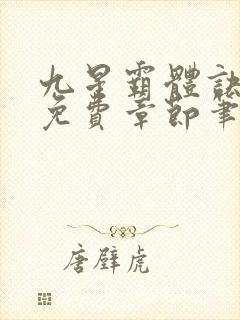 九星霸體訣
免費章節筆
唐壁虎